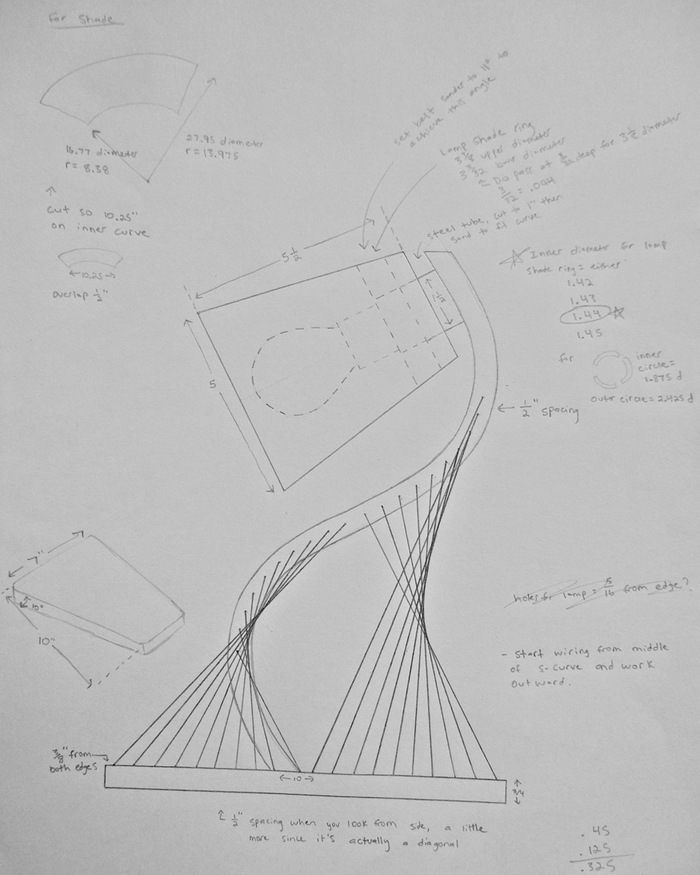 For Shade
16.77 diameter
r = 8.38
27.95 diameter
r = 13.975
cut so 10.25"
on inner curve
←10.25→
overlap ½"
set belt sander to 11° to
achieve this angle
Lamp Shade ring
upper diameter
base diameter
Do pass at deep for 3½ diameter
3/32 = .094
steel tube, cut to 1" then
sand to fit curve
☆ Inner diameter for lamp
shade ring = either
1.42
1.43
1.44 ☆
1.45
for
inner
circle =
1.875 d
outer circle = 2.425 d
5½
1½
5
← ½" spacing
7"
10°
10"
holes for lamp = 5/16 from edge?
- Start wiring from middle
of S-curve and work
outward.
3/8" from
both edges
←10→
3/4
½" spacing when you look from side, a little
more since it's actually a diagonal
.45
.125
.325